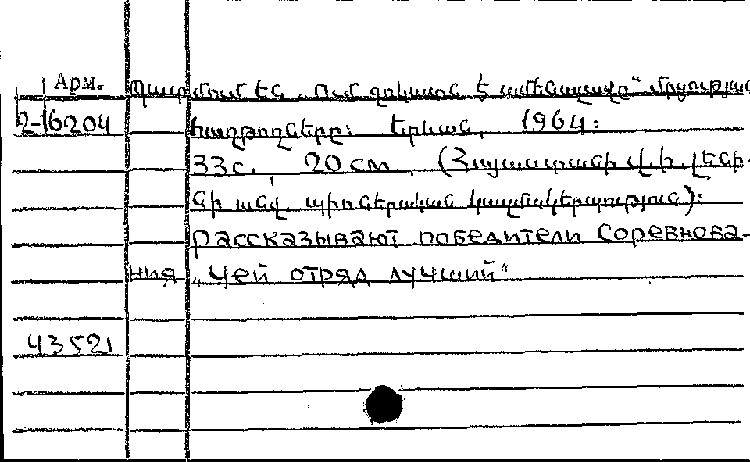 Арм. Պատմում են „Ում ջոկատն է ամենալավը" մրցության
2-16204 հաղթողները: Երևան, 1964:
33с. 20 см. (Հայաստանի Վ.Ի.Լենի-
նի անվ. պիոներական կազմակերպություն):
Рассказывают победители соревнова-
ния „Чей отряд лучший"
43521